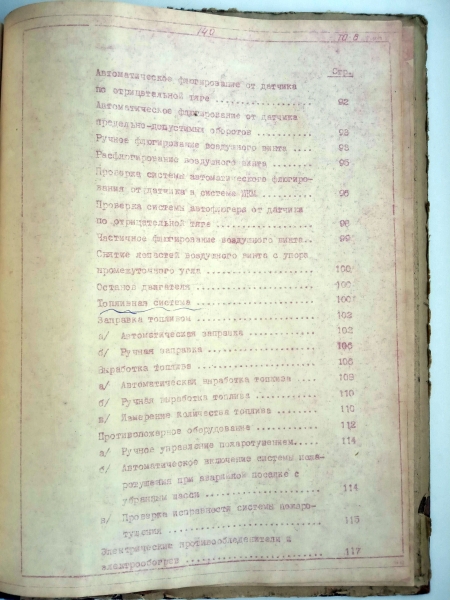 140
Стр.
Автоматическое флюгирование от датчика
по отрицательной тяге ............... 92
Автоматическое флюгирование от датчика
предельно-допустимых оборотов .......... 93
Ручное флюгирование воздушного винта .... 93
Расфлюгирование воздушного винта ........ 95
Проверка системы автоматического флюгиро-
вания от датчика в системе ИКМ .......... 96
Проверка системы автофлюгера от датчика
по отрицательной тяге ............... 98
Частичное флюгирование воздушного винта.. 99
Снятие лопастей воздушного винта с упора
промежуточного угла ................. 100
Останов двигателя ................... 100
Топливная система ................... 100
Заправка топливом ................... 102
а/ Автоматическая заправка ............ 102
б/ Ручная заправка ................. 106
Выработка топлива ................... 108
а/ Автоматическая выработка топлива .... 109
б/ Ручная выработка топлива .......... 110
в/ Измерение количества топлива ....... 110
Противопожарное оборудование ............ 112
а/ Ручное управление пожаротушением..... 114
б/ Автоматическое включение системы пожа-
ротушения при аварийной посадке с
убранным шасси ................... 114
в/ Проверка исправности системы пожаро-
тушения ....................... 115
Электрические противообледенители и
электрообогрев ..................... 117